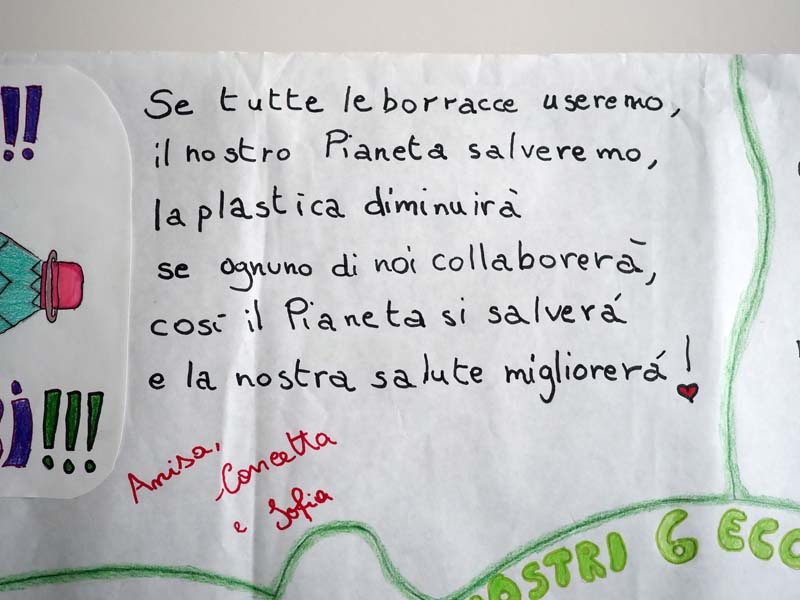 !!
Se tutte le borracce useremo,
il nostro Pianeta salveremo,
la plastica diminuirà
se ognuno di noi collaborerà,
così il Pianeta si salverá
e la nostra salute migliorerá!
!!!
Anisa,
Concetta
e Sofia
OSTRI 6 ECO